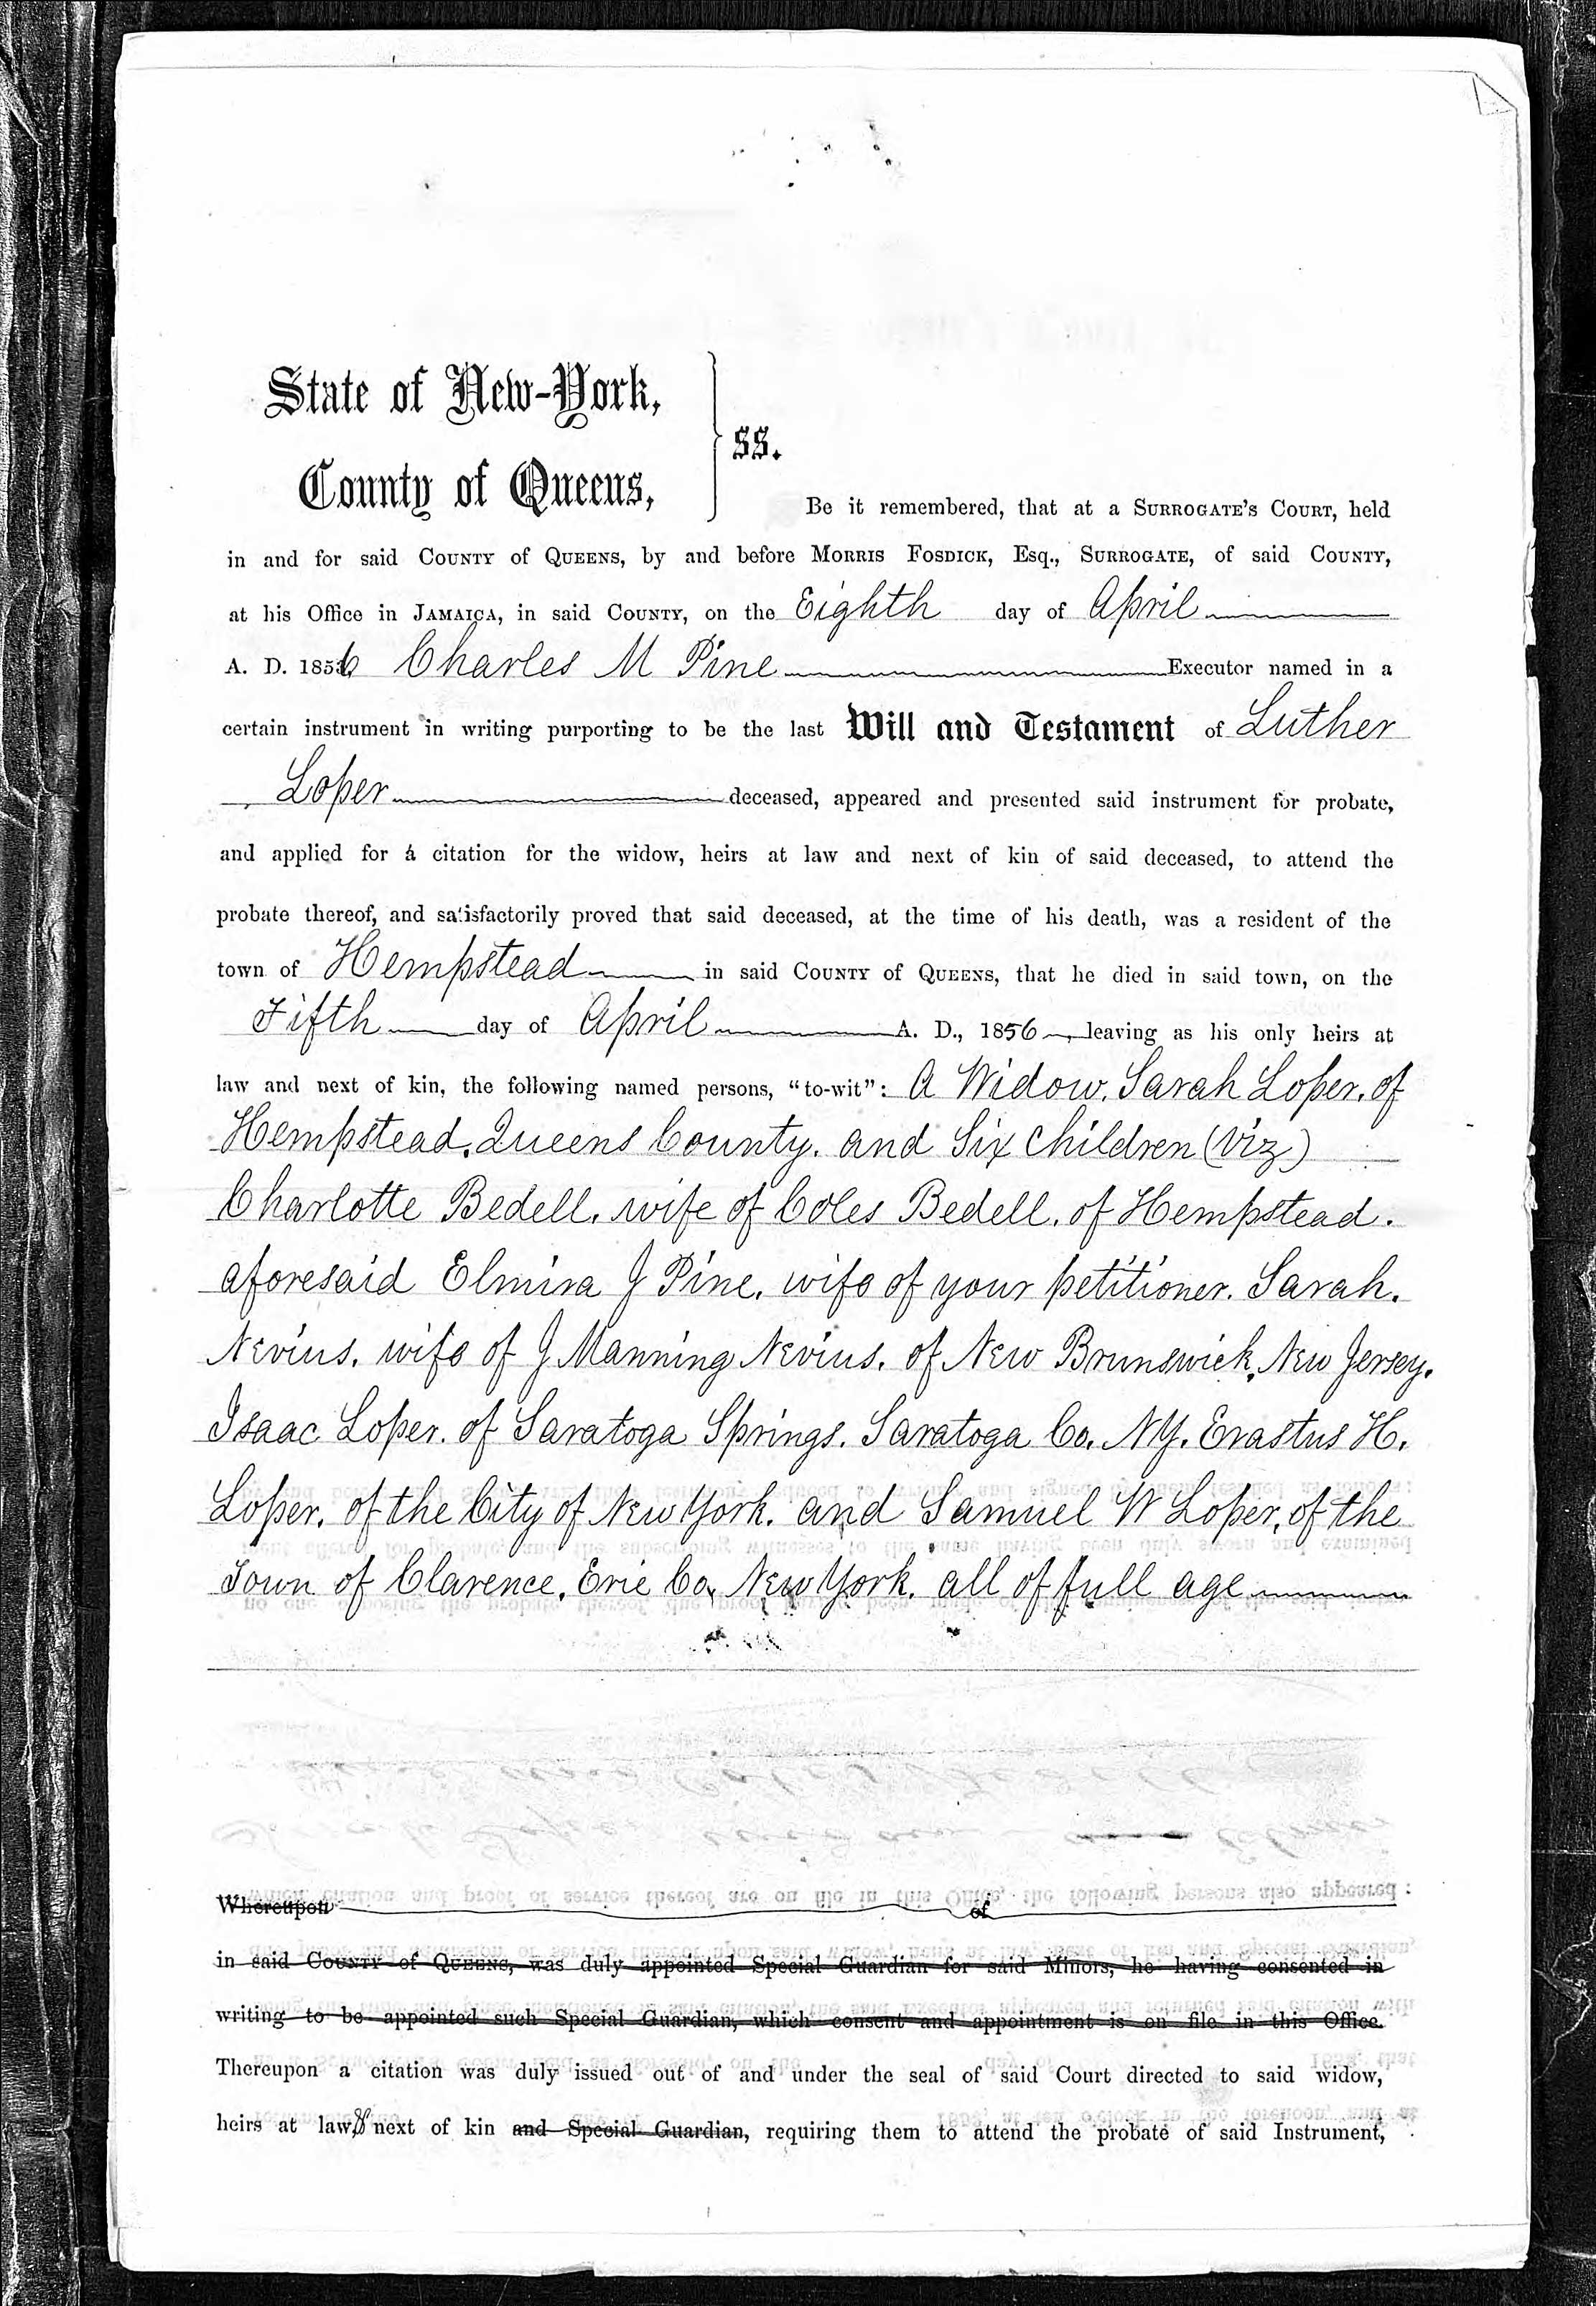 State of New-York,
County of Queens,
ss.
Be it remembered, that at a Surrogate's Court, held
in and for said County of Queens, by and before Morris Fosdick, Esq., Surrogate, of said County,
at his Office in Jamaica, in said County, on the Eighth day of April
A. D. 1856 Charles M Pine Executor named in a
certain instrument in writing purporting to be the last Will and Testament of Luther
Loper deceased, appeared and presented said instrument for probate,
and applied for a citation for the widow, heirs at law and next of kin of said deceased, to attend the
probate thereof, and satisfactorily proved that said deceased, at the time of his death, was a resident of the
town of Hempstead in said County of Queens, that he died in said town, on the
Fifth day of April A. D., 1856, leaving as his only heirs at
law and next of kin, the following named persons, "to-wit": A Widow. Sarah Loper. of
Hempstead. Queens County. and Six Children (Viz)
Charlotte Bedell. wife of Coles Bedell. of Hempstead.
aforesaid Elmira J Pine. wife of your petitioner. Sarah.
Nevius. wife of J Manning Nevius. of New Brunswick, New Jersey.
Isaac Loper. of Saratoga Springs. Saratoga Co. NY. Erastus H.
Loper. of the City of New York. and Samuel W Loper, of the
Town of Clarence. Erie Co. New York. all of full age
Whereupon of
in said County of Queens, was duly appointed Special Guardian for said Minors, he having consented in
writing to be appointed such Special Guardian, which consent and appointment is on file in this Office.
Thereupon a citation was duly issued out of and under the seal of said Court directed to said widow,
heirs at law, & next of kin and Special Guardian, requiring them to attend the probate of said Instrument,